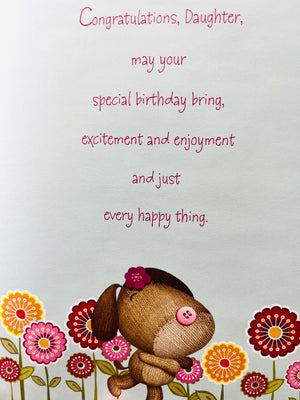 Congratulations, Daughter,
may your
special birthday bring,
excitement and enjoyment
and just
every happy thing.